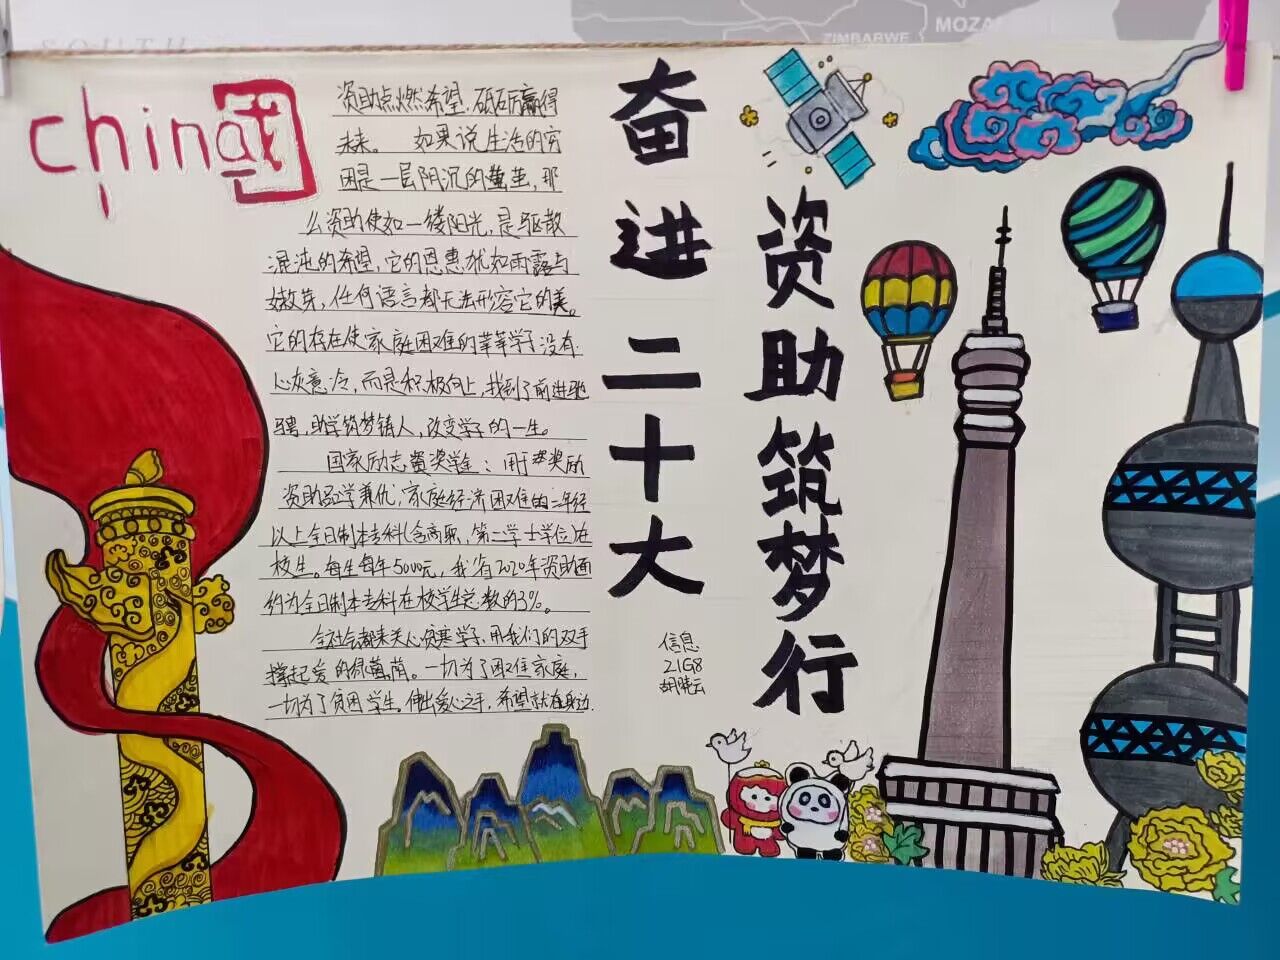 SOUTH
ZIMBABWE
MOZA
china国
资助点燃希望，砥砺赢得
未来。 如果说生活的穷
困是一层阴沉的
么资助使如一缕阳光，是驱散
混沌的希望，它的恩惠犹如雨露与
嫩芽，任何语言都无法形容它的美。
它的存在使家庭困难的莘莘学子没有
心灰意冷，而是积极向上，找到了前进驰
骋，助学筑梦铸人，改变学子的一生。
国家励志奖学金：用于奖励
资助品学兼优，家庭经济困难的二年级
以上全日制本专科（含高职、第二学士学位）在
校生。每生每年5000元，我省2020年资助面
约为全日制本专科在校学生总数的3%。
全社会都来关心贫寒学子，用我们的双手
撑起爱的绿荫。一切为了困难家庭，
一切为了贫困学生。伸出爱心之手，希望就在身边.
奋进二十大
资助筑梦行
信息
21G8
胡晓云